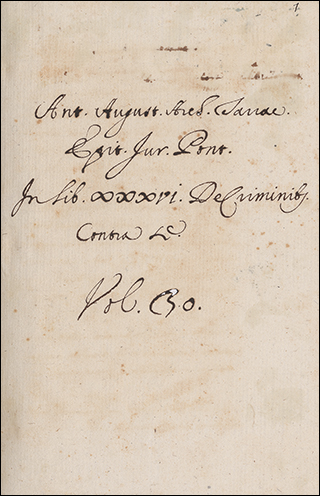 1
Ant. August. Arch. Tarrac.
Epit. Jur. Pont.
In Lib. XXXVI. De Criminib,
Contra &c.
Vol.